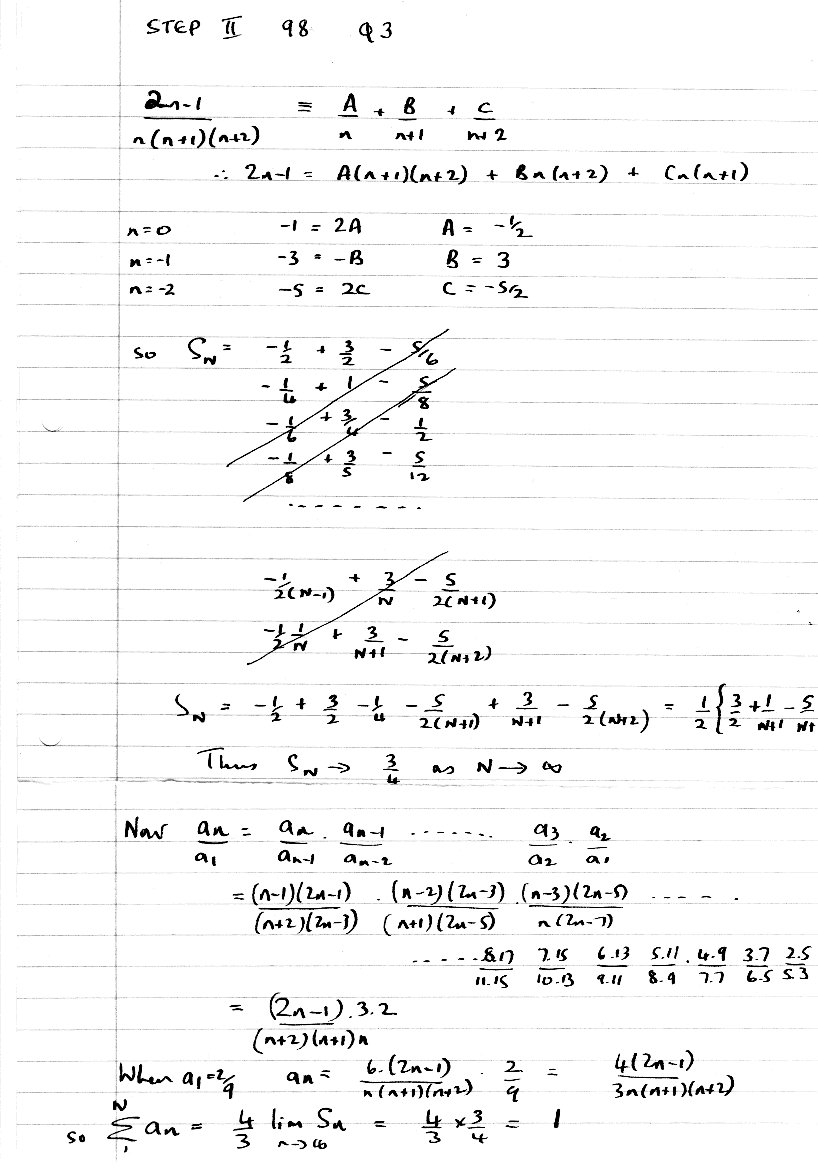 STEP II 98 Q3
2n-1 / n(n+1)(n+2) ≡ A/n + B/n+1 + C/n+2
∴ 2n-1 = A(n+1)(n+2) + Bn(n+2) + Cn(n+1)
n=0 -1 = 2A A = -1/2
n=-1 -3 = -B B = 3
n=-2 -5 = 2C C = -5/2
so S_N = -1/2 + 3/2 - 5/6
-1/4 + 1 - 5/8
-1/6 + 3/4 - 1/2
-1/8 + 3/5 - 5/12
- - - - - - - -
-1/2(N-1) + 3/N - 5/2(N+1)
-1/2 1/N + 3/N+1 - 5/2(N+2)
S_N = -1/2 + 3/2 - 1/4 - 5/2(N+1) + 3/N+1 - 5/2(N+2) = 1/2 { 3/2 + 1/N+1 - 5/N+
Thus S_N → 3/4 as N → ∞
Now an/a1 = an/an-1 . an-1/an-2 ....... a3/a2 . a2/a1
= (n-1)(2n-1)/(n+2)(2n-3) . (n-2)(2n-3)/(n+1)(2n-5) . (n-3)(2n-5)/n(2n-7) .....
..... 8.17/11.15 7.15/10.13 6.13/9.11 5.11/8.9 . 4.9/7.7 3.7/6.5 2.5/5.3
= (2n-1).3.2/(n+2)(n+1)n
When a1=2/9 an = 6.(2n-1)/n(n+1)(n+2) . 2/9 = 4(2n-1)/3n(n+1)(n+2)
so N∑1 an = 4/3 lim n→∞ Sn = 4/3 × 3/4 = 1